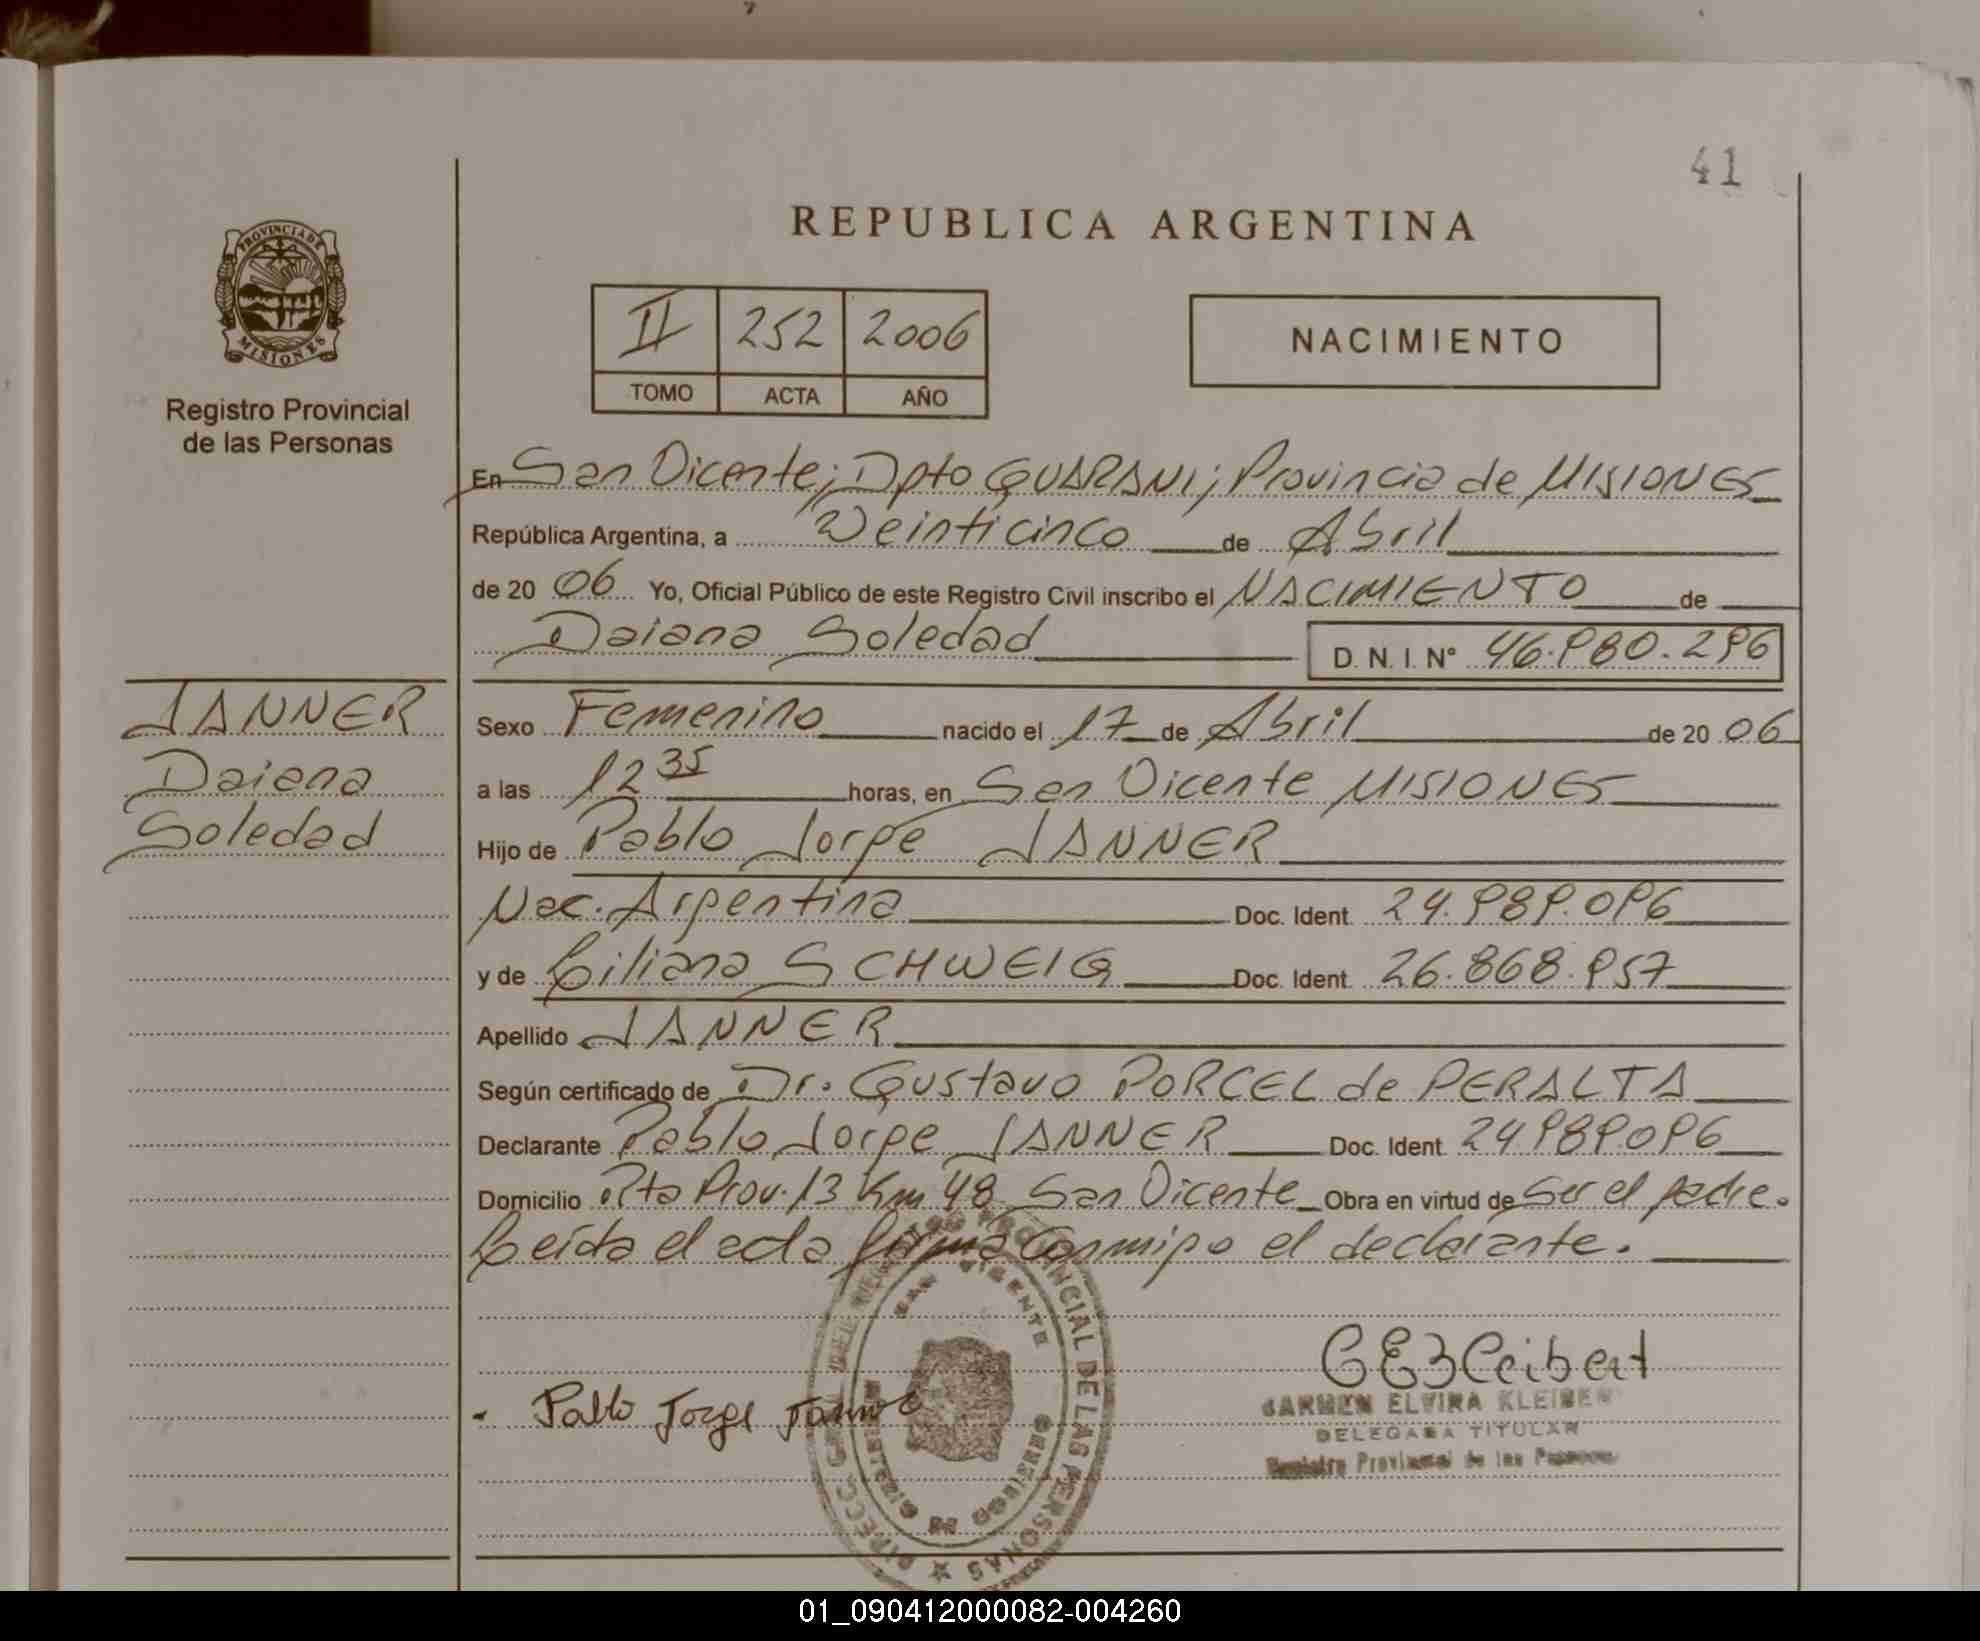 41
REPUBLICA ARGENTINA
PROVINCIA DE
MISIONES
Registro Provincial
de las Personas
II 252 2006
TOMO ACTA AÑO
NACIMIENTO
En San Vicente; Dpto GUARANI; Provincia de MISIONES
República Argentina, a Veinticinco de Abril
de 20 06 Yo, Oficial Público de este Registro Civil inscribo el NACIMIENTO de
Daiana Soledad D. N. I. N° 46.980.296
JANNER
Daiana
Soledad
Sexo Femenino nacido el 17 de Abril de 20 06
a las 12 35 horas, en San Vicente MISIONES
Hijo de Pablo Jorge JANNER
Nac. Argentina Doc. Ident. 24.989.096
y de Liliana SCHWEIG Doc. Ident. 26.868.957
Apellido JANNER
Según certificado de Dr. Gustavo PORCEL de PERALTA
Declarante Pablo Jorge JANNER Doc. Ident. 24.989.096
Domicilio Rta Prov. 13 Km 48 San Vicente Obra en virtud de Ser el padre.
Leída el acta firma conmigo el declarante.
PROVINCIAL DE LAS PERSONAS
SAN VICENTE
Pablo Jorge Janner
CARMEN ELVIRA
DELEGADA TITULAR
Registro Provincial de las Personas
01_090412000082-004260